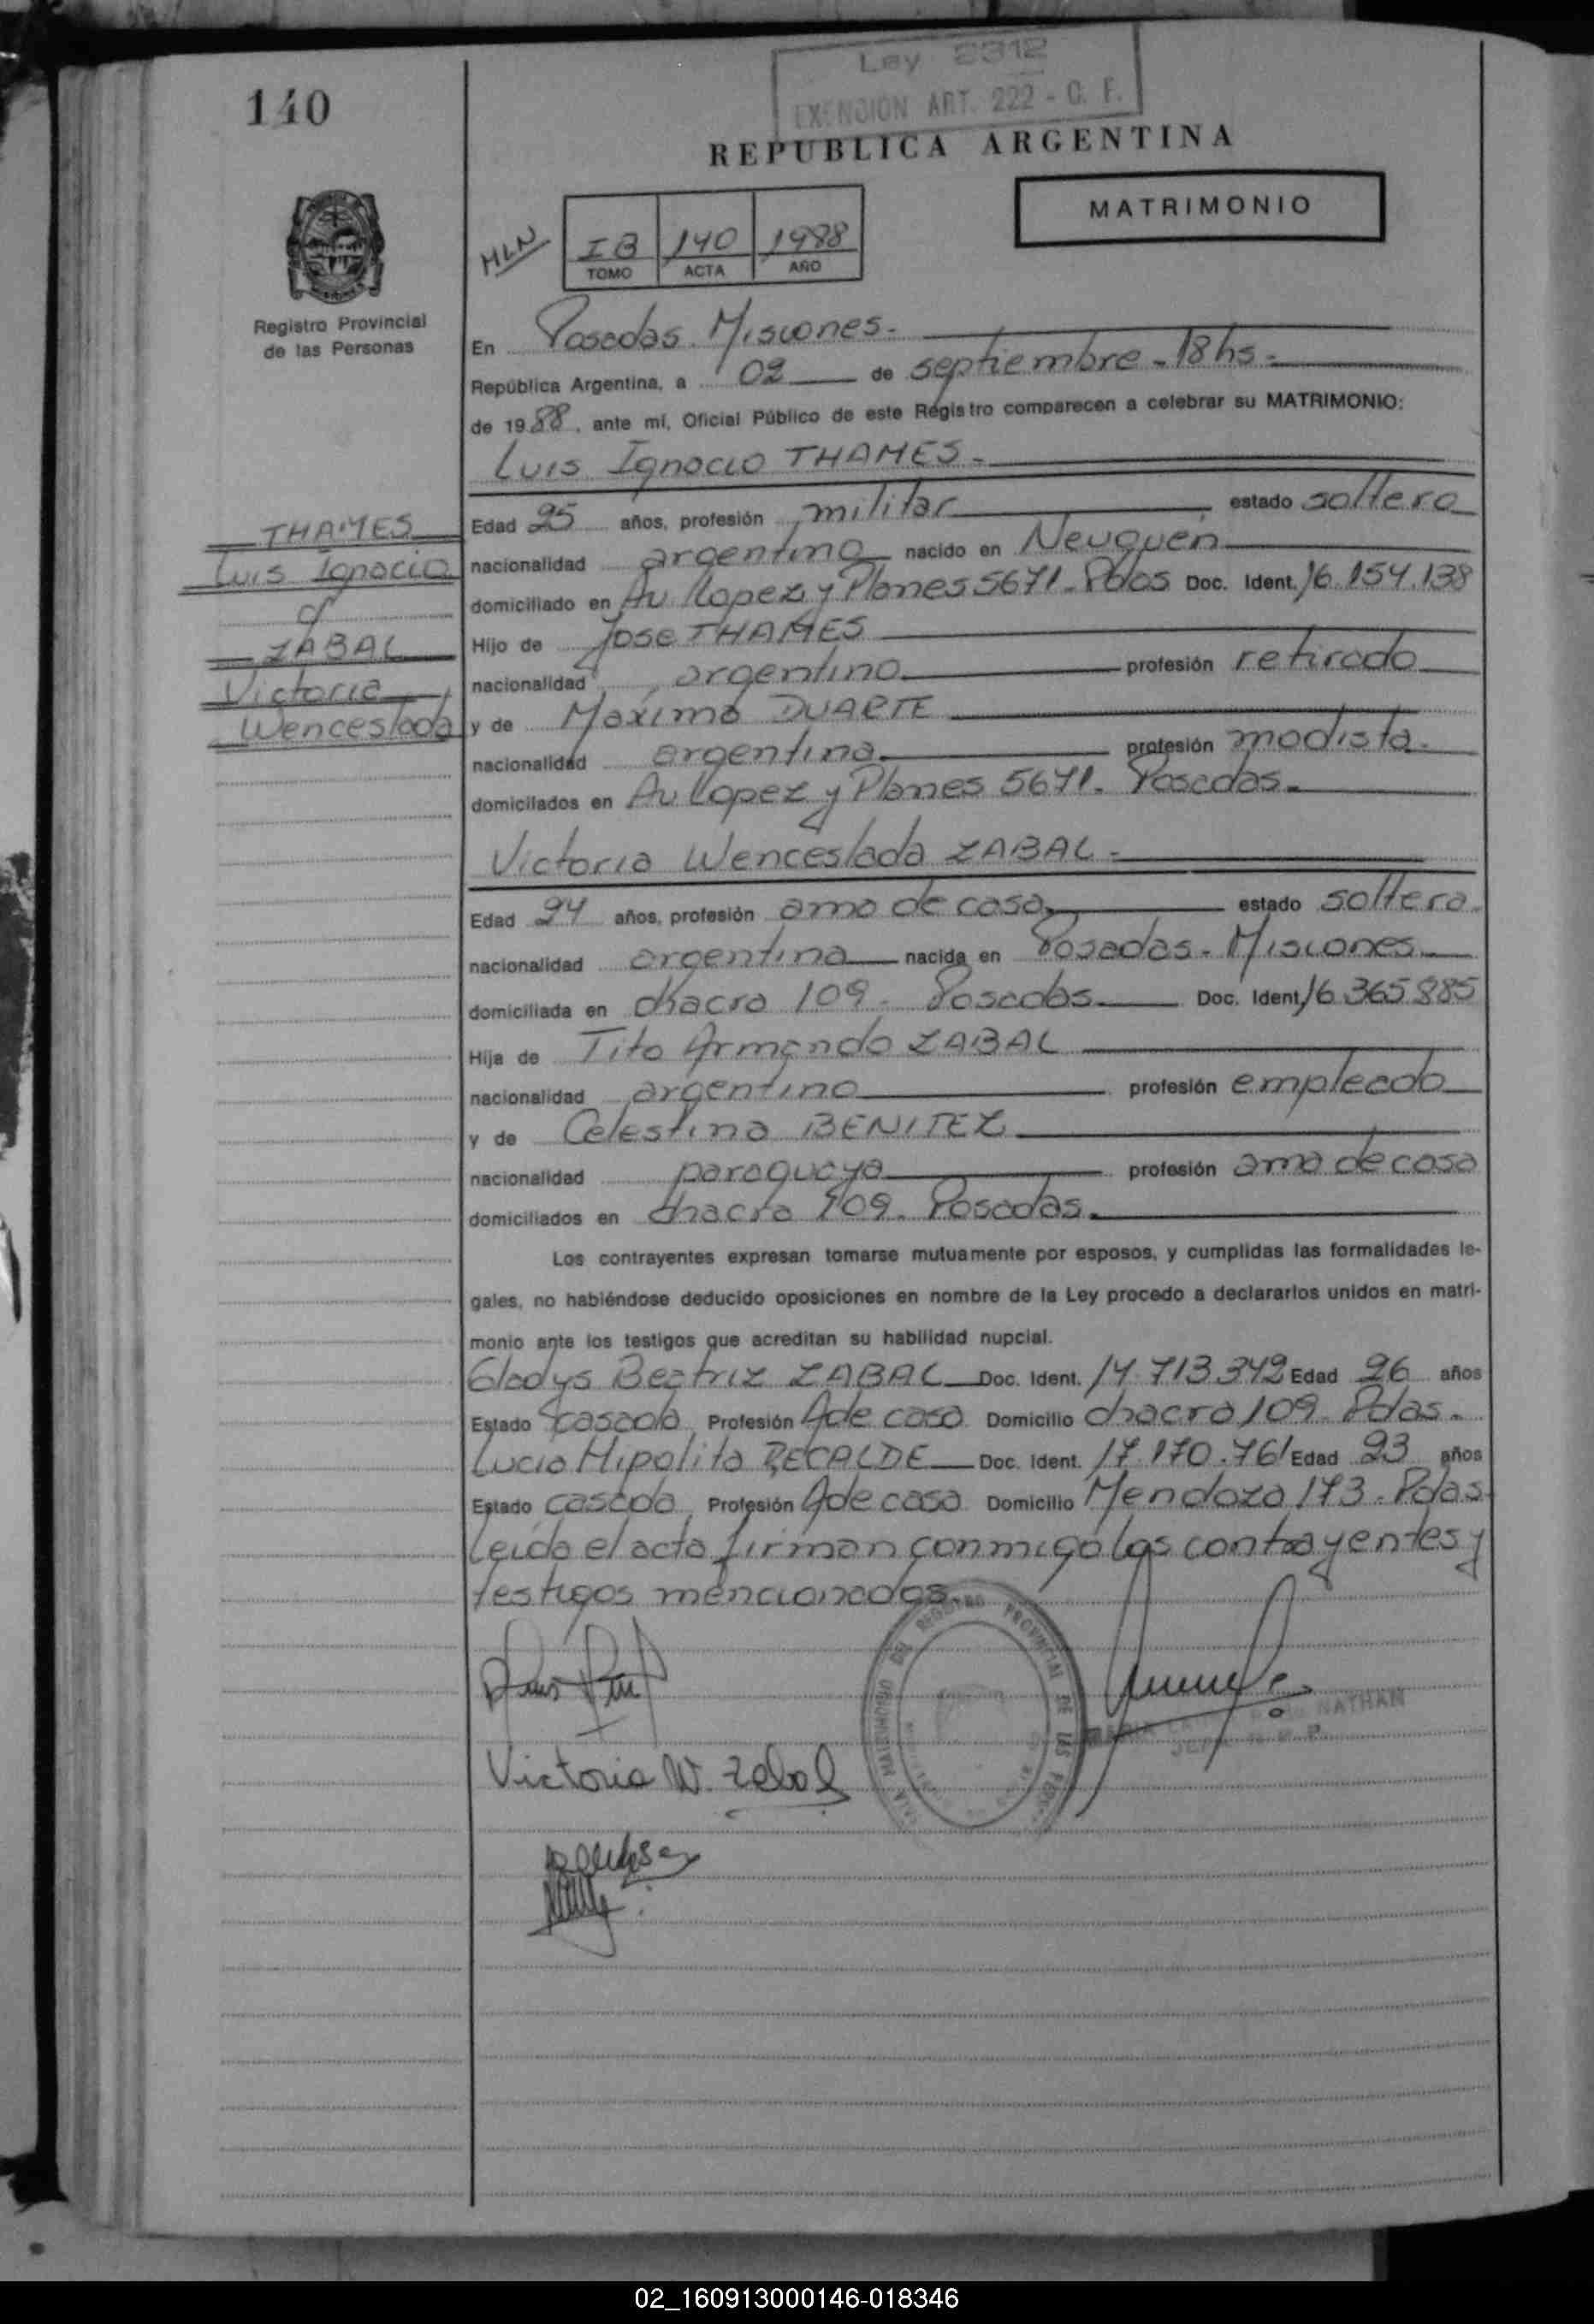 Ley 2312
EXENCION ART. 222 - C. F.
140
REPUBLICA ARGENTINA
MATRIMONIO
MLN
IB 140 1988
TOMO ACTA AÑO
Registro Provincial
de las Personas
En Posadas. Misiones.
República Argentina, a 02 de septiembre - 18 hs.
de 1988, ante mí, Oficial Público de este Registro comparecen a celebrar su MATRIMONIO:
Luis Ignacio THAMES.
THAMES
Luis Ignacio
c/
ZABAL
Victoria
Wenceslada
Edad 25 años, profesión militar estado soltero
nacionalidad argentino nacido en Neuquén
domiciliado en Av Lopez y Planes 5671. Pdas Doc. Ident. 16.154.138
Hijo de Jose THAMES
nacionalidad argentino profesión retirado
y de Maxima DUARTE
nacionalidad argentina profesión modista.
domicilados en Av Lopez y Planes 5671. Posadas.
Victoria Wenceslada ZABAL.
Edad 24 años, profesión ama de casa estado soltera.
nacionalidad argentina nacida en Posadas - Misiones
domiciliada en chacra 109. Posadas Doc. Ident. 16.365.885
Hija de Tito Armando ZABAL
nacionalidad argentino profesión empleado
y de Celestina BENITEZ
nacionalidad paraguaya profesión ama de casa
domiciliados en chacra 109. Posadas.
Los contrayentes expresan tomarse mutuamente por esposos, y cumplidas las formalidades le-
gales, no habiéndose deducido oposiciones en nombre de la Ley procedo a declararlos unidos en matri-
monio ante los testigos que acreditan su habilidad nupcial.
Gladys Beatriz ZABAL Doc. Ident. 14.713.342 Edad 26 años
Estado casada Profesión A de casa Domicilio chacra 109. Pdas.
Lucia Hipolita RECALDE Doc. Ident. 17.170.761 Edad 23 años
Estado casada Profesión A de casa Domicilio Mendoza 173. Pdas
Leida el acta firman conmigo los contrayentes y
testigos mencionados.
REGISTRO PROVINCIAL DE LAS
NATHAN
Victoria W. Zabal
02_160913000146-018346